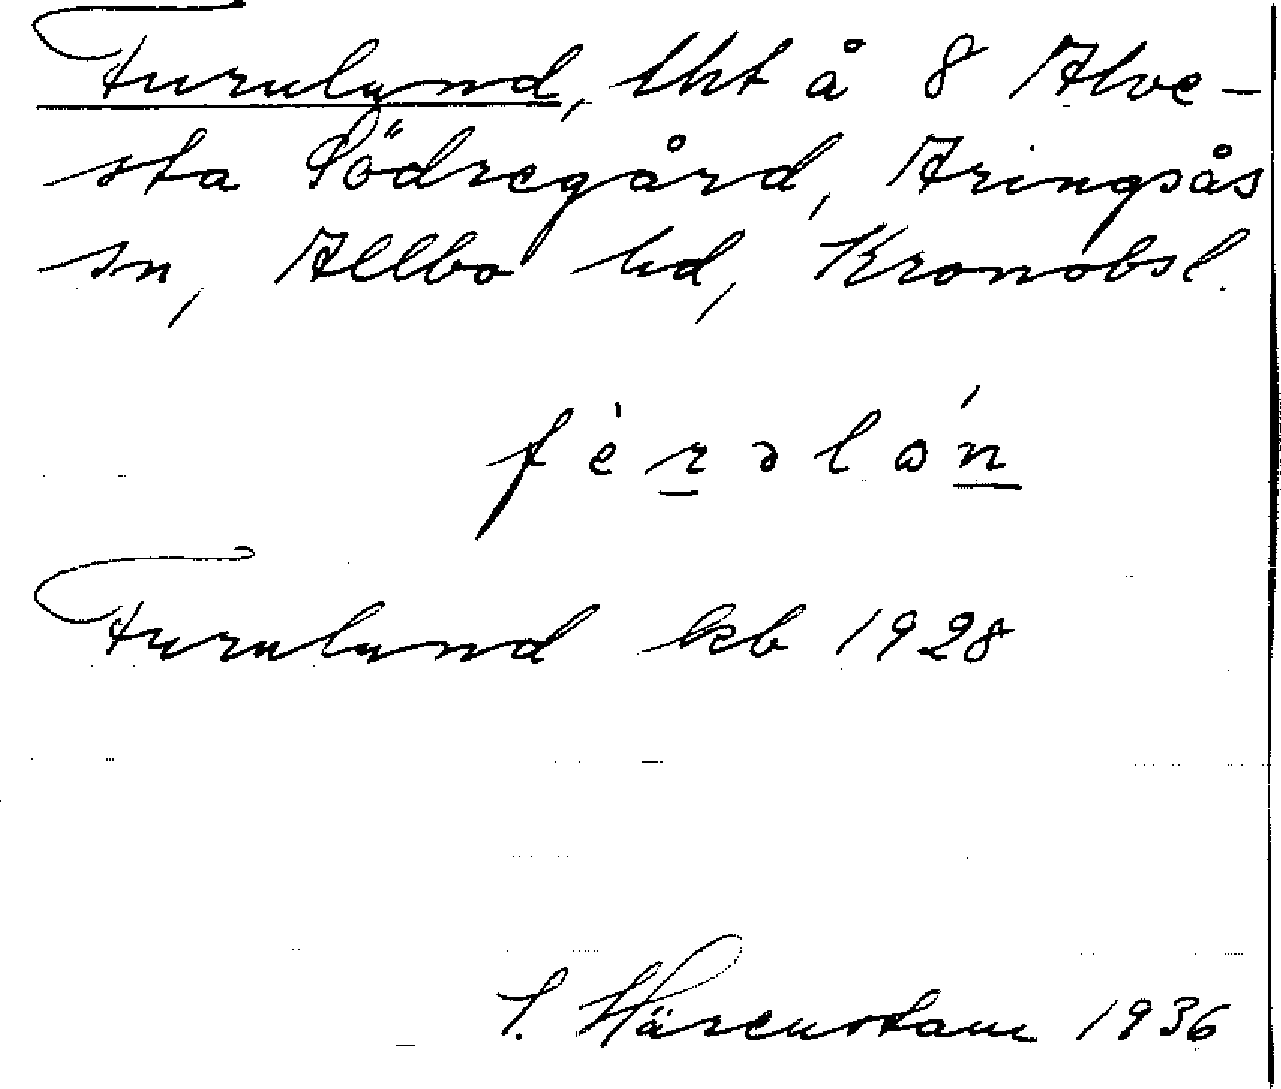 Furulund, lht å 8 Alve-
sta Södregård, Aringsås
sn, Allbo hd, Kronobsl.
fè̀rəlón
Furulund kb 1928
S. Härenstam 1936